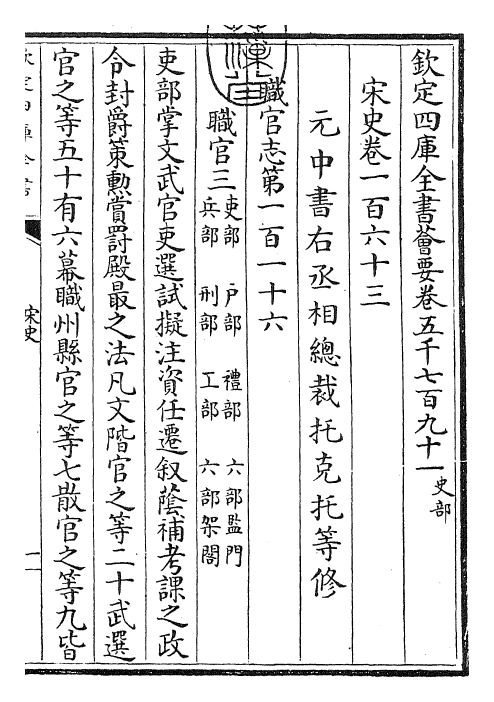 欽定四庫全書薈要卷五千七百九十一 史部
宋史卷一百六十三
元中書右丞相總裁托克托等修
職官志第一百一十六
職官三 吏部 戶部 禮部 六部監門
兵部 刑部 工部 六部架閣
吏部掌文武官吏選試擬注資任遷叙蔭補考課之政
令封爵策勲賞罰殿最之法凡文階官之等二十武選
官之等五十有六幕職州縣官之等七散官之等九皆
欽定四庫全書
宋史
一